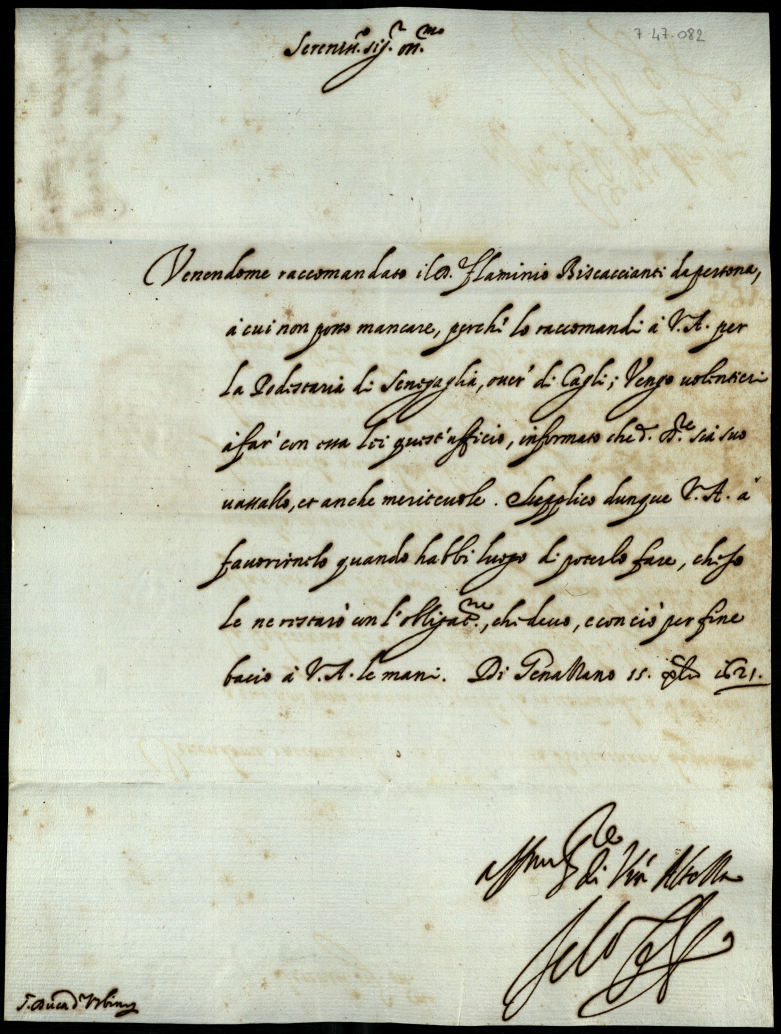 7 47.082
Seren.mo sig.r
Venendome raccomandato il D. Flaminio Biscaccianti da persona,
à cui non posso mancare, perchè lo raccomandi à V.A. per
la Podestaria di Senegaglia, over' di Cagli; Vengo volentieri
à far' con essa lei quest'ufficio, informato che d. D.re sia suo
vassallo, et anche meritevole. Supplico dunque V.A. à
favorirnelo quando habbi luogo di poterlo fare, che io
le ne restarò con l'obligat.ne, che devo, e con ciò per fine
bacio à V.A. le mani. Di Genazzano 15. 1621.
di V'ra Altezza
S. Duca d' Urbino